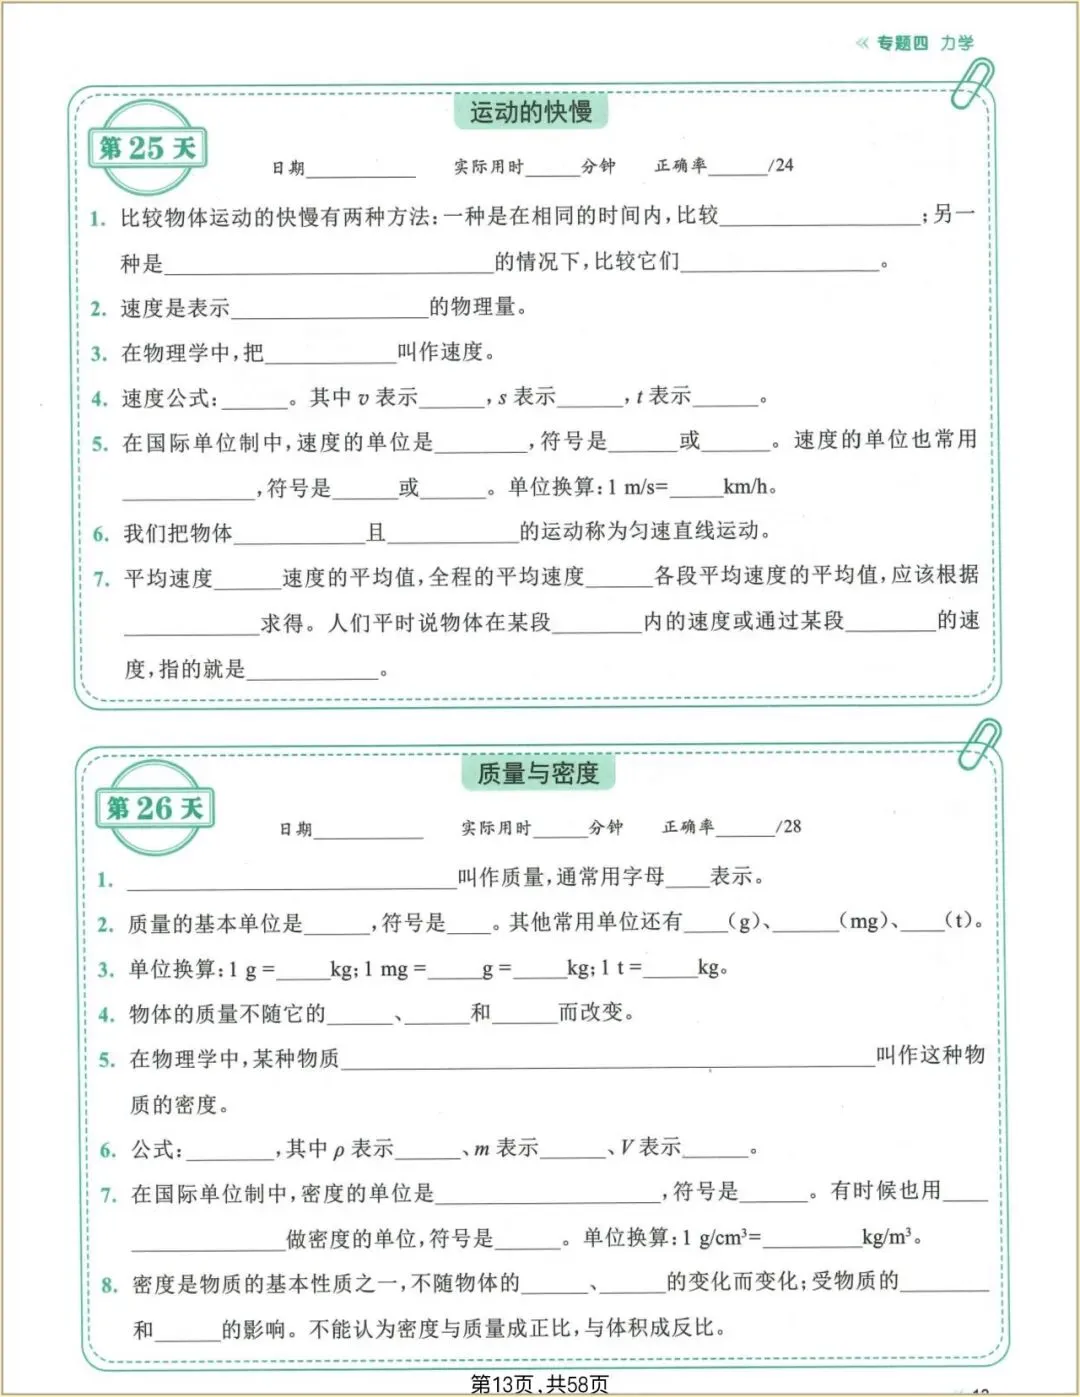 « 专题四 力学
运动的快慢
第 25 天
日期__________ 实际用时_____分钟 正确率_____/24
1. 比较物体运动的快慢有两种方法:一种是在相同的时间内,比较__________________;另一
种是______________________________的情况下,比较它们__________________。
2. 速度是表示__________________的物理量。
3. 在物理学中,把____________叫作速度。
4. 速度公式:______。其中 v 表示______,s 表示______,t 表示______。
5. 在国际单位制中,速度的单位是________,符号是______或______。速度的单位也常用
____________,符号是______或______。单位换算:1 m/s=_____km/h。
6. 我们把物体____________且____________的运动称为匀速直线运动。
7. 平均速度______速度的平均值,全程的平均速度______各段平均速度的平均值,应该根据
____________求得。人们平时说物体在某段________内的速度或通过某段________的速
度,指的就是____________。
质量与密度
第 26 天
日期__________ 实际用时_____分钟 正确率_____/28
1. ______________________________叫作质量,通常用字母____表示。
2. 质量的基本单位是______,符号是____。其他常用单位还有____(g)、______(mg)、____(t)。
3. 单位换算:1 g =_____kg;1 mg =_____g =_____kg;1 t =_____kg。
4. 物体的质量不随它的______、______和______而改变。
5. 在物理学中,某种物质________________________________________________叫作这种物
质的密度。
6. 公式:________,其中 ρ 表示______、m 表示______、V 表示______。
7. 在国际单位制中,密度的单位是____________________,符号是______。有时候也用____
______________做密度的单位,符号是______。单位换算:1 g/cm³=_________kg/m³。
8. 密度是物质的基本性质之一,不随物体的______、______的变化而变化;受物质的________
和______的影响。不能认为密度与质量成正比,与体积成反比。
第13页,共58页